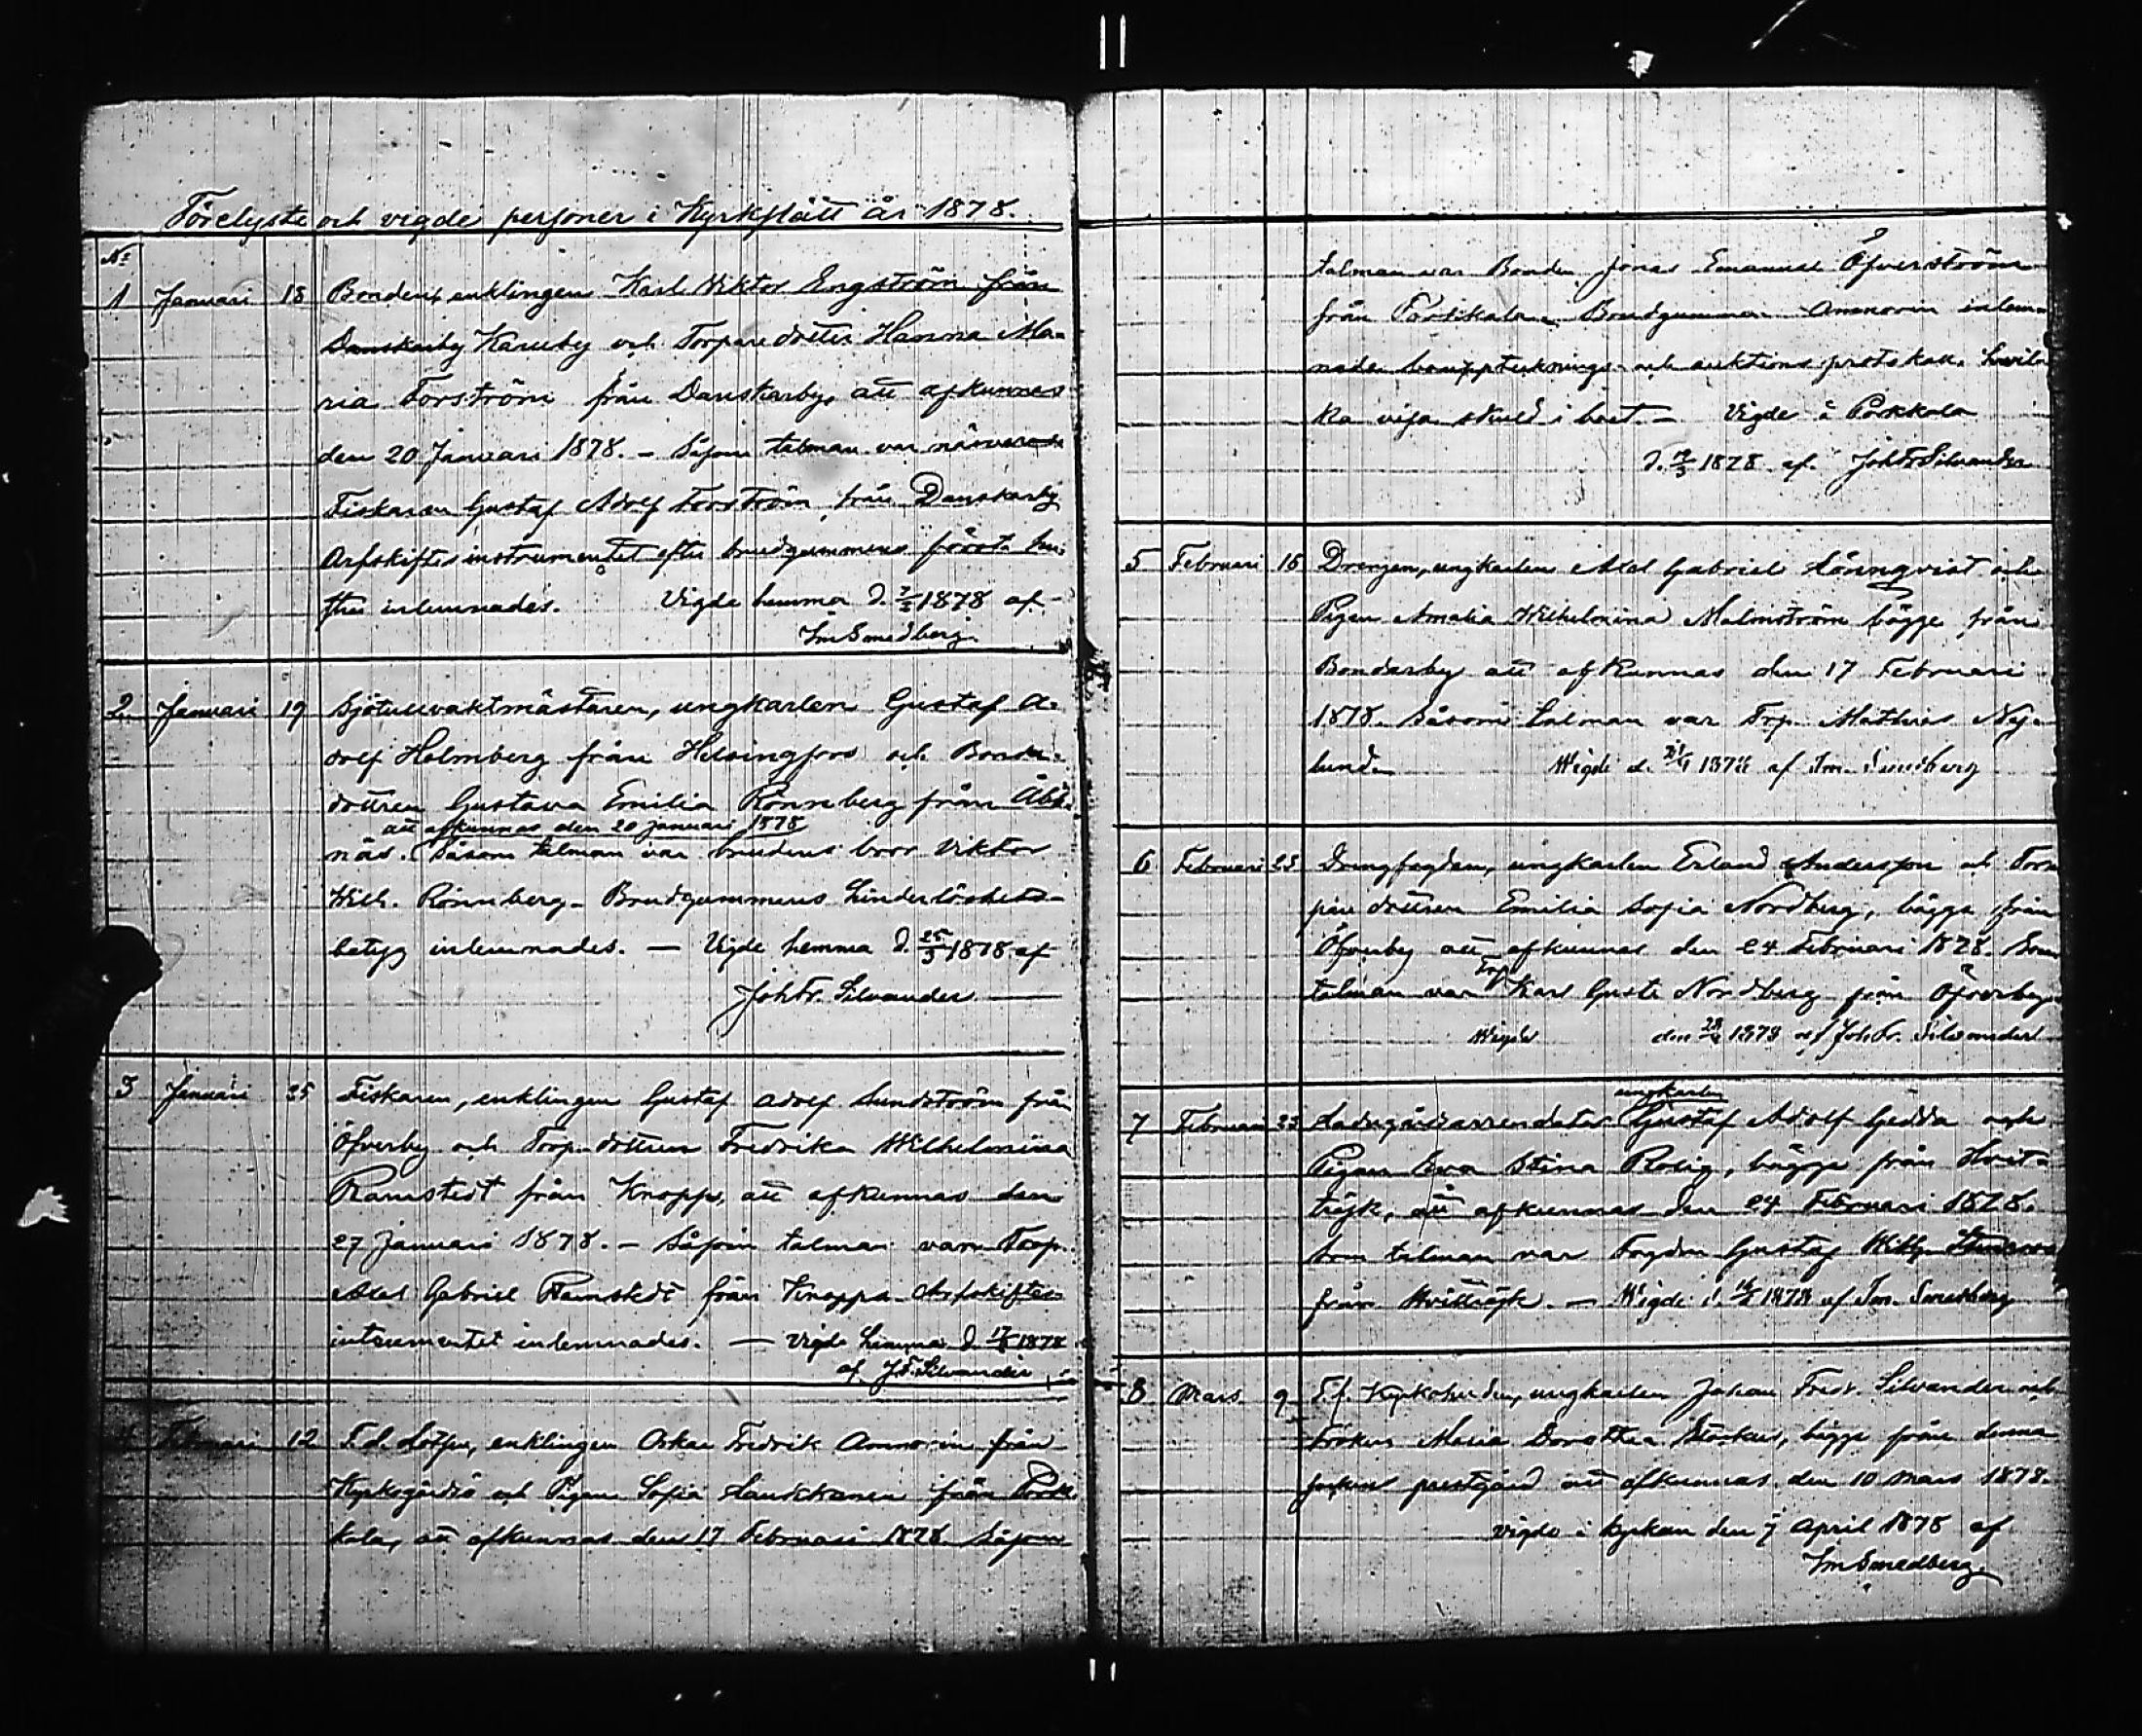 Förelyste och vigde personer i Kyrkslätt år 1878.
No
1 Januari 18 Bonden, enklingen Karl Viktor Engström från
Danskarby Karuby och Torpare dotter Hanna Ma-
ria Forström från Danskarby, att afkunnas
den 20 Januari 1878. - Såsom talman var närvarande
Fiskaren Gustaf Adolf Forström från Danskarby
Arfskiftesinstrumentet efter brudgummens första hu-
stru inlemnades. Vigde hemma d. 7/2 1878 af
Im Smedberg.
2. Januari 19 Sjötullvaktmästaren, ungkarlen Gustaf A-
dolf Holmberg från Helsingfors och Bonde-
dottren Gustava Emilia Rönnberg från
att afkunnas den 20 januari 1878
näs. Såsom talman var brudens bror Viktor
Wilh. Rönnberg. Brudgummens hinderlöshets-
betyg inlemnades. — Vigde hemma d. 25/3 1878 af
Joh Fr. Silvander
3 Januari 25 Fiskaren, enklingen Gustaf Adolf Sundström från
Öfverby och Torp. dottren Fredrika Wilhelmina
Ramstedt från Knopps, att afkunnas den
27 Januari 1878. - Såsom talman var Torp.
Axel Gabriel Ramstedt från Knoppa. Arfskiftes-
intrumentet inlemnades. — Vigde hemma d. 1878
af J F. Silvander
4 Februari 12 F.d. Lotsen, enklingen Oskar Fredrik Ammorin från
Kyrkogårdsö och Pigan Sofia från Pork-
kala, att afkunnas den 17 Februari 1878. Såsom
talman var Bonden Jonas Emanuel Öfverström
från Porkkala. Brudgumman Ammorin inlem-
nade bouppteknings- och auktions protokoll, hvil-
ka visa skuld i boet. — Vigde å Porkkala
d. 1878 af Joh Fr Silvander
5 Februari 16 Drengen, ungkarlen Axel Gabriel Lönnqvist och
Pigan Amalia Wilhelmina Malmström bägge från
Bondarby att afkunnas den 17 Februari
1878. Såsom talman var Torp. Mathias Ny-
lund. Wigde d. 1878 af Im. Smedberg
6 Februari 23 Drengfogden, ungkarlen Erland Andersson och Torp
pare dottren Emilia Sofia Nordberg, bägge från
Öfverby att afkunnas den 24 Februari 1878. Som
talman var Torp Karl Gust. Nordberg från Öfverby
Wigde den 1878 af Joh Fr. Silvander
ungkarlen
7 Februari 23 Ladugårdsarrendator Gustaf Adolf Gedda och
Pigan Eva Stina Rolig, bägge från Hvit-
träsk, att afkunnas den 24 Februari 1878.
Som talman var Fogden Gustaf Wilh.
från Hvitträsk. — Wigde d. 1878 af Im. Smedberg
8 Mars 9 T.f. Kyrkoherden, ungkarlen Johan Fredr. Silvander och
Fröken Maria Dorothea bägge från denna
sockens prestgård att afkunnas den 10 Mars 1878.
Vigde i kyrkan den 7 April 1878 af
Im Smedberg.